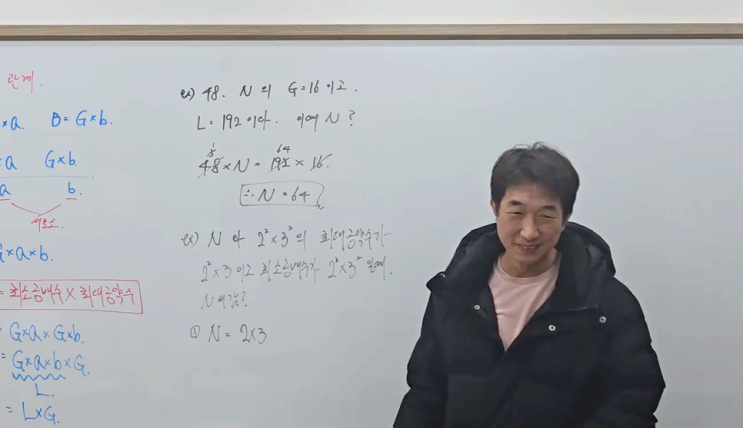 관계.
×a. B = G×b.
×a G×b.
a b.
서로소.
G×a×b.
= 최소공배수 × 최대공약수
= G×a×G×b.
= G×a×b×G.
L.
= L×G.
ex) 48. N 의 G=16 이고.
L = 192 이다. 이때 N ?
64
48×N = 192 × 16.
∴ N = 64
ex) N 과 2²×3³의 최대공약수가
2²×3 이고 최소공배수가 일때.
N 의 값?
① N = 2×3